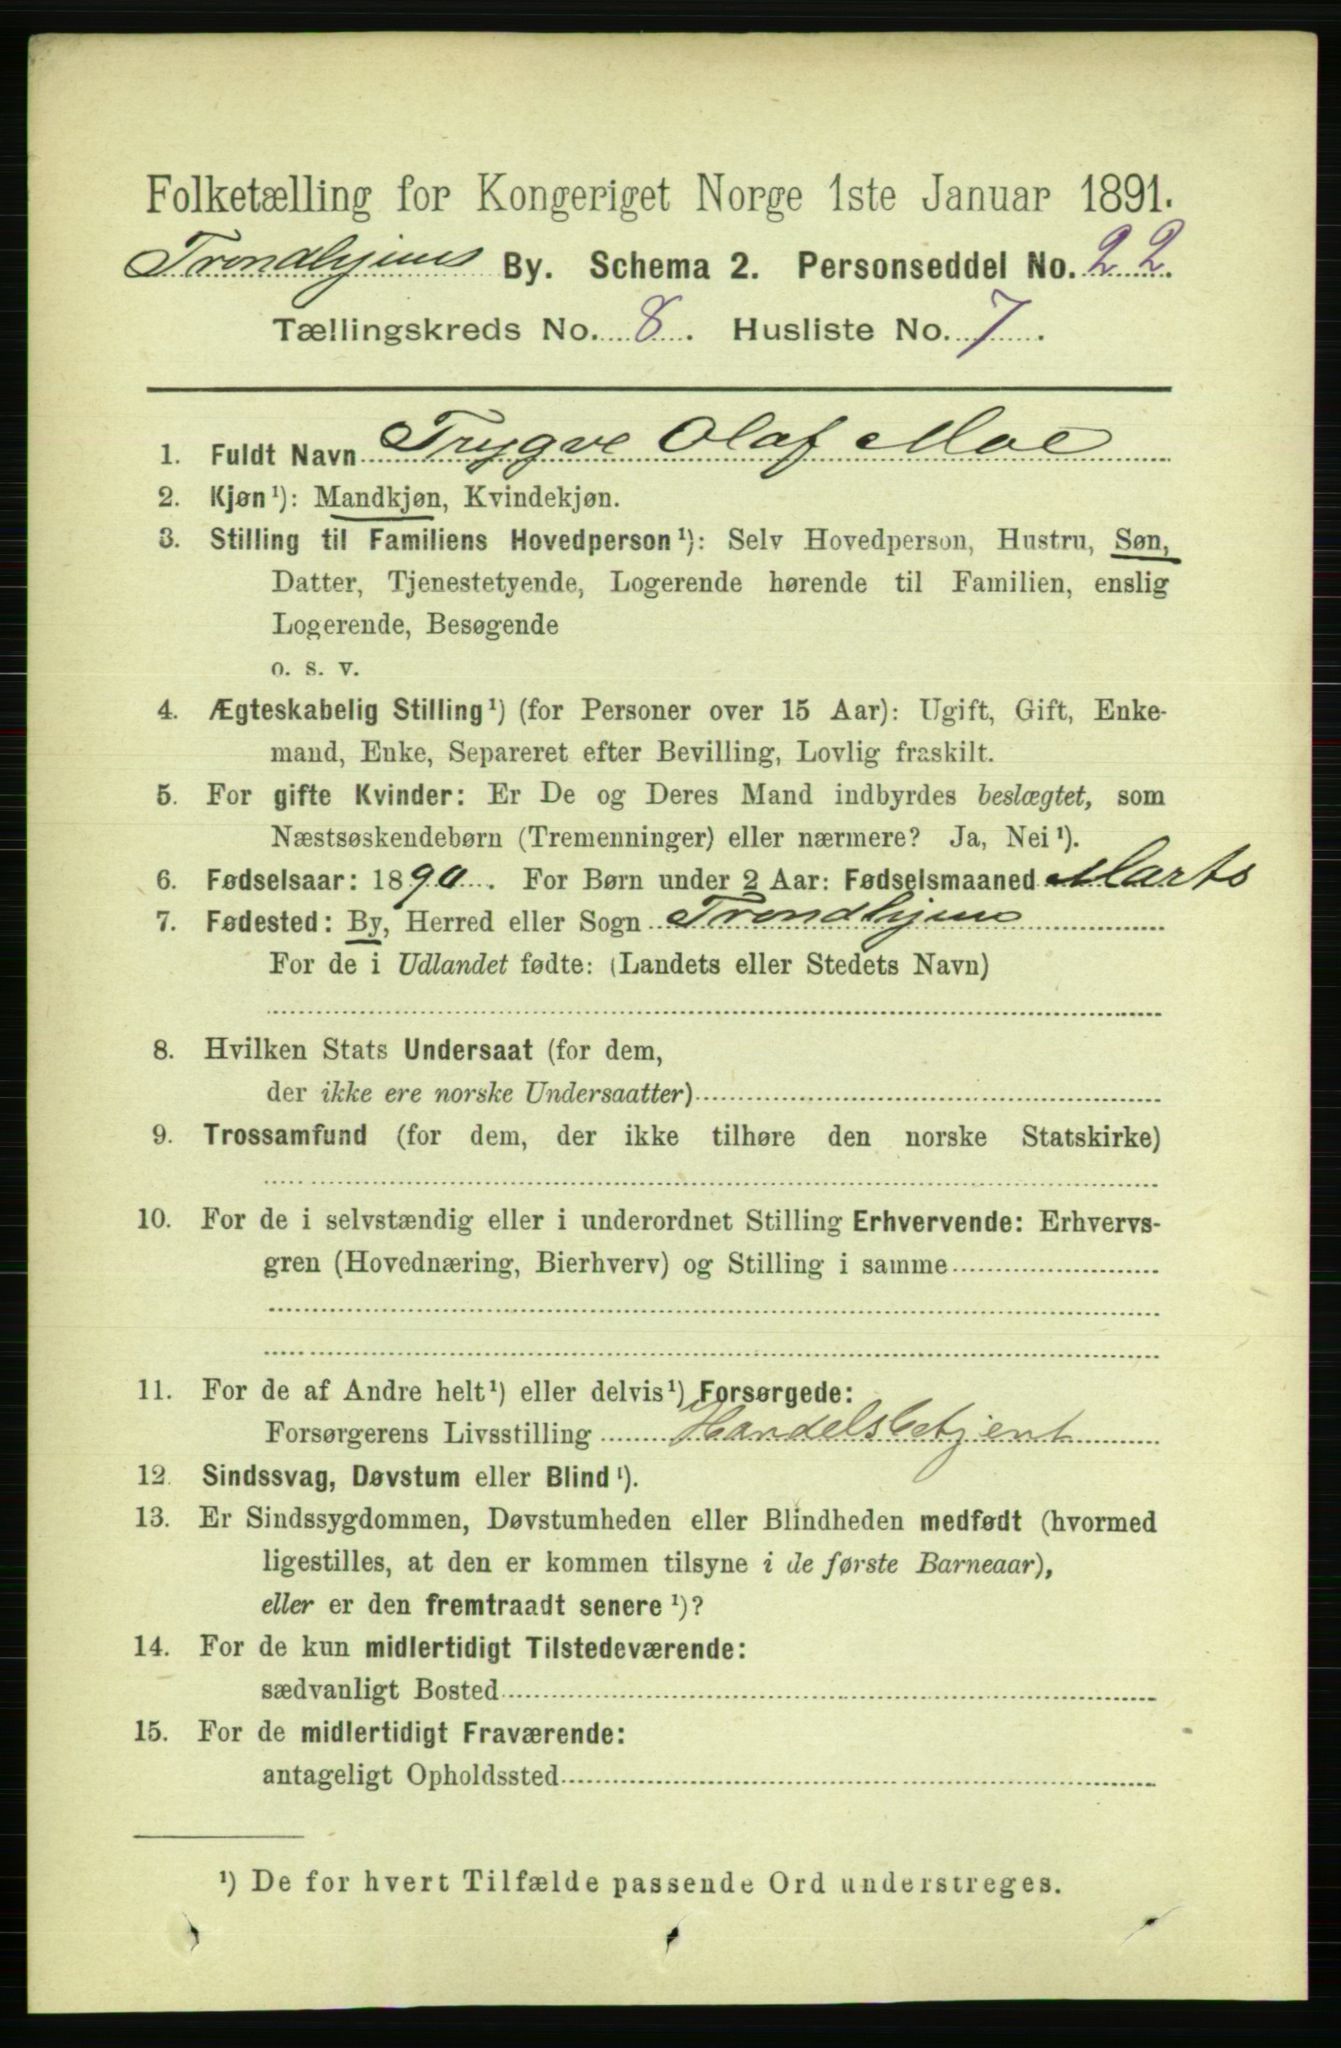 Folketælling for Kongeriget Norge 1ste Januar 1891.
Trondhjems By. Schema 2. Personseddel No. 22.
Tællingskreds No. 8. Husliste No. 7.
1. Fuldt Navn Trygve Olaf Moe
2. Kjøn¹): Mandkjøn, Kvindekjøn.
3. Stilling til Familiens Hovedperson¹): Selv Hovedperson, Hustru, Søn,
Datter, Tjenestetyende, Logerende hørende til Familien, enslig
Logerende, Besøgende
o. s. v.
4. Ægteskabelig Stilling¹) (for Personer over 15 Aar): Ugift, Gift, Enke-
mand, Enke, Separeret efter Bevilling, Lovlig fraskilt.
5. For gifte Kvinder: Er De og Deres Mand indbyrdes beslægtet, som
Næstsøskendebørn (Tremenninger) eller nærmere? Ja, Nei¹).
6. Fødselsaar: 1890. For Børn under 2 Aar: Fødselsmaaned Marts
7. Fødested: By, Herred eller Sogn Trondhjem
For de i Udlandet fødte: (Landets eller Stedets Navn)
8. Hvilken Stats Undersaat (for dem,
der ikke ere norske Undersaatter)
9. Trossamfund (for dem, der ikke tilhøre den norske Statskirke)
10. For de i selvstændig eller i underordnet Stilling Erhvervende: Erhvervs-
gren (Hovednæring, Bierhverv) og Stilling i samme
11. For de af Andre helt¹) eller delvis¹) Forsørgede:
Forsørgerens Livsstilling Handelsbetjent
12. Sindssvag, Døvstum eller Blind¹).
13. Er Sindssygdommen, Døvstumheden eller Blindheden medfødt (hvormed
ligestilles, at den er kommen tilsyne i de første Barneaar),
eller er den fremtraadt senere¹)?
14. For de kun midlertidigt Tilstedeværende:
sædvanligt Bosted
15. For de midlertidigt Fraværende:
antageligt Opholdssted
¹) De for hvert Tilfælde passende Ord understreges.